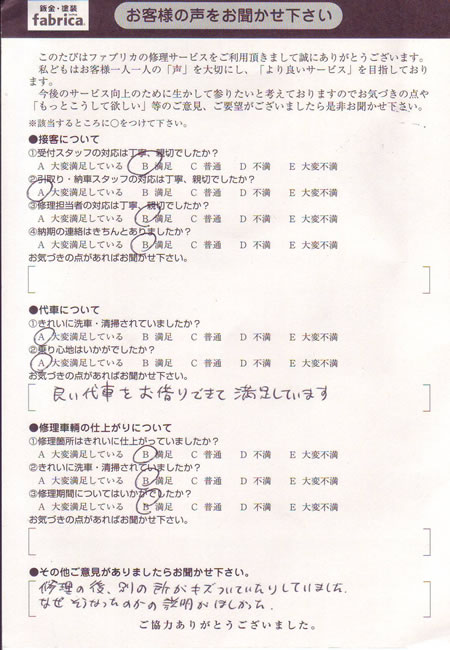 鈑金・塗装
fabrica.
お客様の声をお聞かせ下さい
このたびはファブリカの修理サービスをご利用頂きまして誠にありがとうございます。
私どもはお客様一人一人の「声」を大切にし、「より良いサービス」を目指しており
ます。
今後のサービス向上のために生かして参りたいと考えておりますのでお気づきの点や
「もっとこうして欲しい」等のご意見、ご要望がございましたら是非お聞かせ下さい。
※該当するところに○をつけて下さい。
●接客について
①受付スタッフの対応は丁寧、親切でしたか?
A 大変満足している B 満足 C 普通 D 不満 E 大変不満
②引取り・納車スタッフの対応は丁寧、親切でしたか?
A 大変満足している B 満足 C 普通 D 不満 E 大変不満
③修理担当者の対応は丁寧、親切でしたか?
A 大変満足している B 満足 C 普通 D 不満 E 大変不満
④納期の連絡はきちんとありましたか?
A 大変満足している B 満足 C 普通 D 不満 E 大変不満
お気づきの点があればお聞かせ下さい。
●代車について
①きれいに洗車・清掃されていましたか?
A 大変満足している B 満足 C 普通 D 不満 E 大変不満
②乗り心地はいかがでしたか?
A 大変満足している B 満足 C 普通 D 不満 E 大変不満
お気づきの点があればお聞かせ下さい。
良い代車をお借りできて満足しています
●修理車輌の仕上がりについて
①修理箇所はきれいに仕上がっていましたか?
A 大変満足している B 満足 C 普通 D 不満 E 大変不満
②きれいに洗車・清掃されていましたか?
A 大変満足している B 満足 C 普通 D 不満 E 大変不満
③修理期間についてはいかがでしたか?
A 大変満足している B 満足 C 普通 D 不満 E 大変不満
お気づきの点があればお聞かせ下さい。
●その他ご意見がありましたらお聞かせ下さい。
修理の後、別の所がキズついていたりしていました.
なぜそうなったのかの説明がほしかった.
ご協力ありがとうございました。